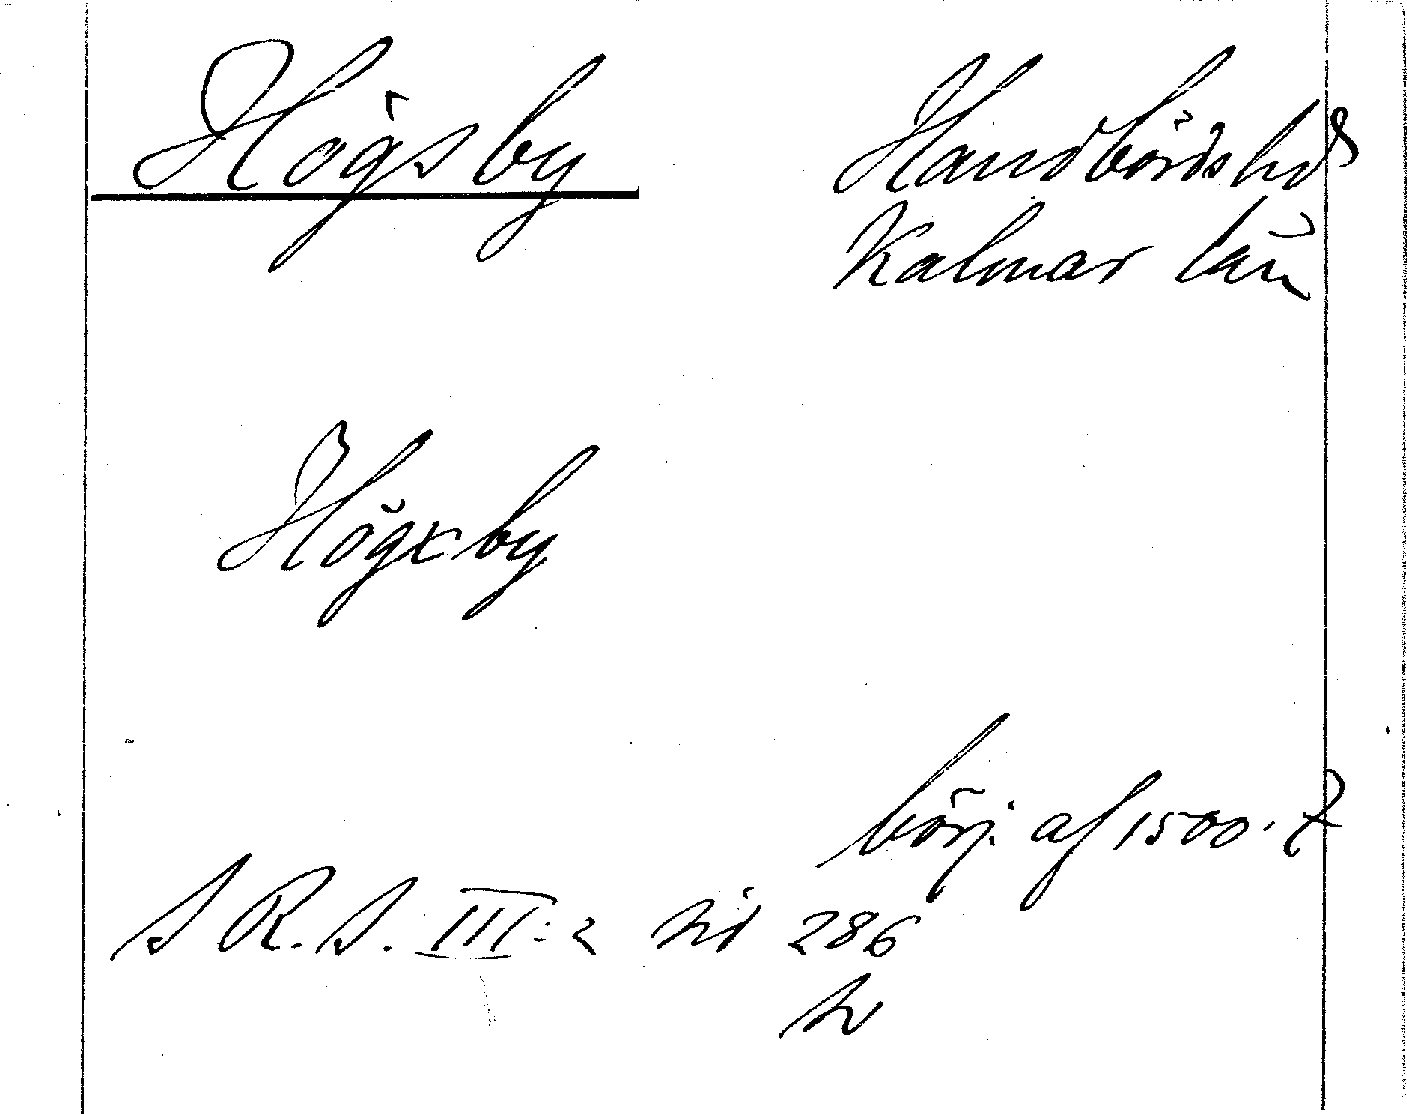 Högsby
Handbörds hd
Kalmar län
Högxby
börj. af 1500. t
S R. S. III:2 sid 286